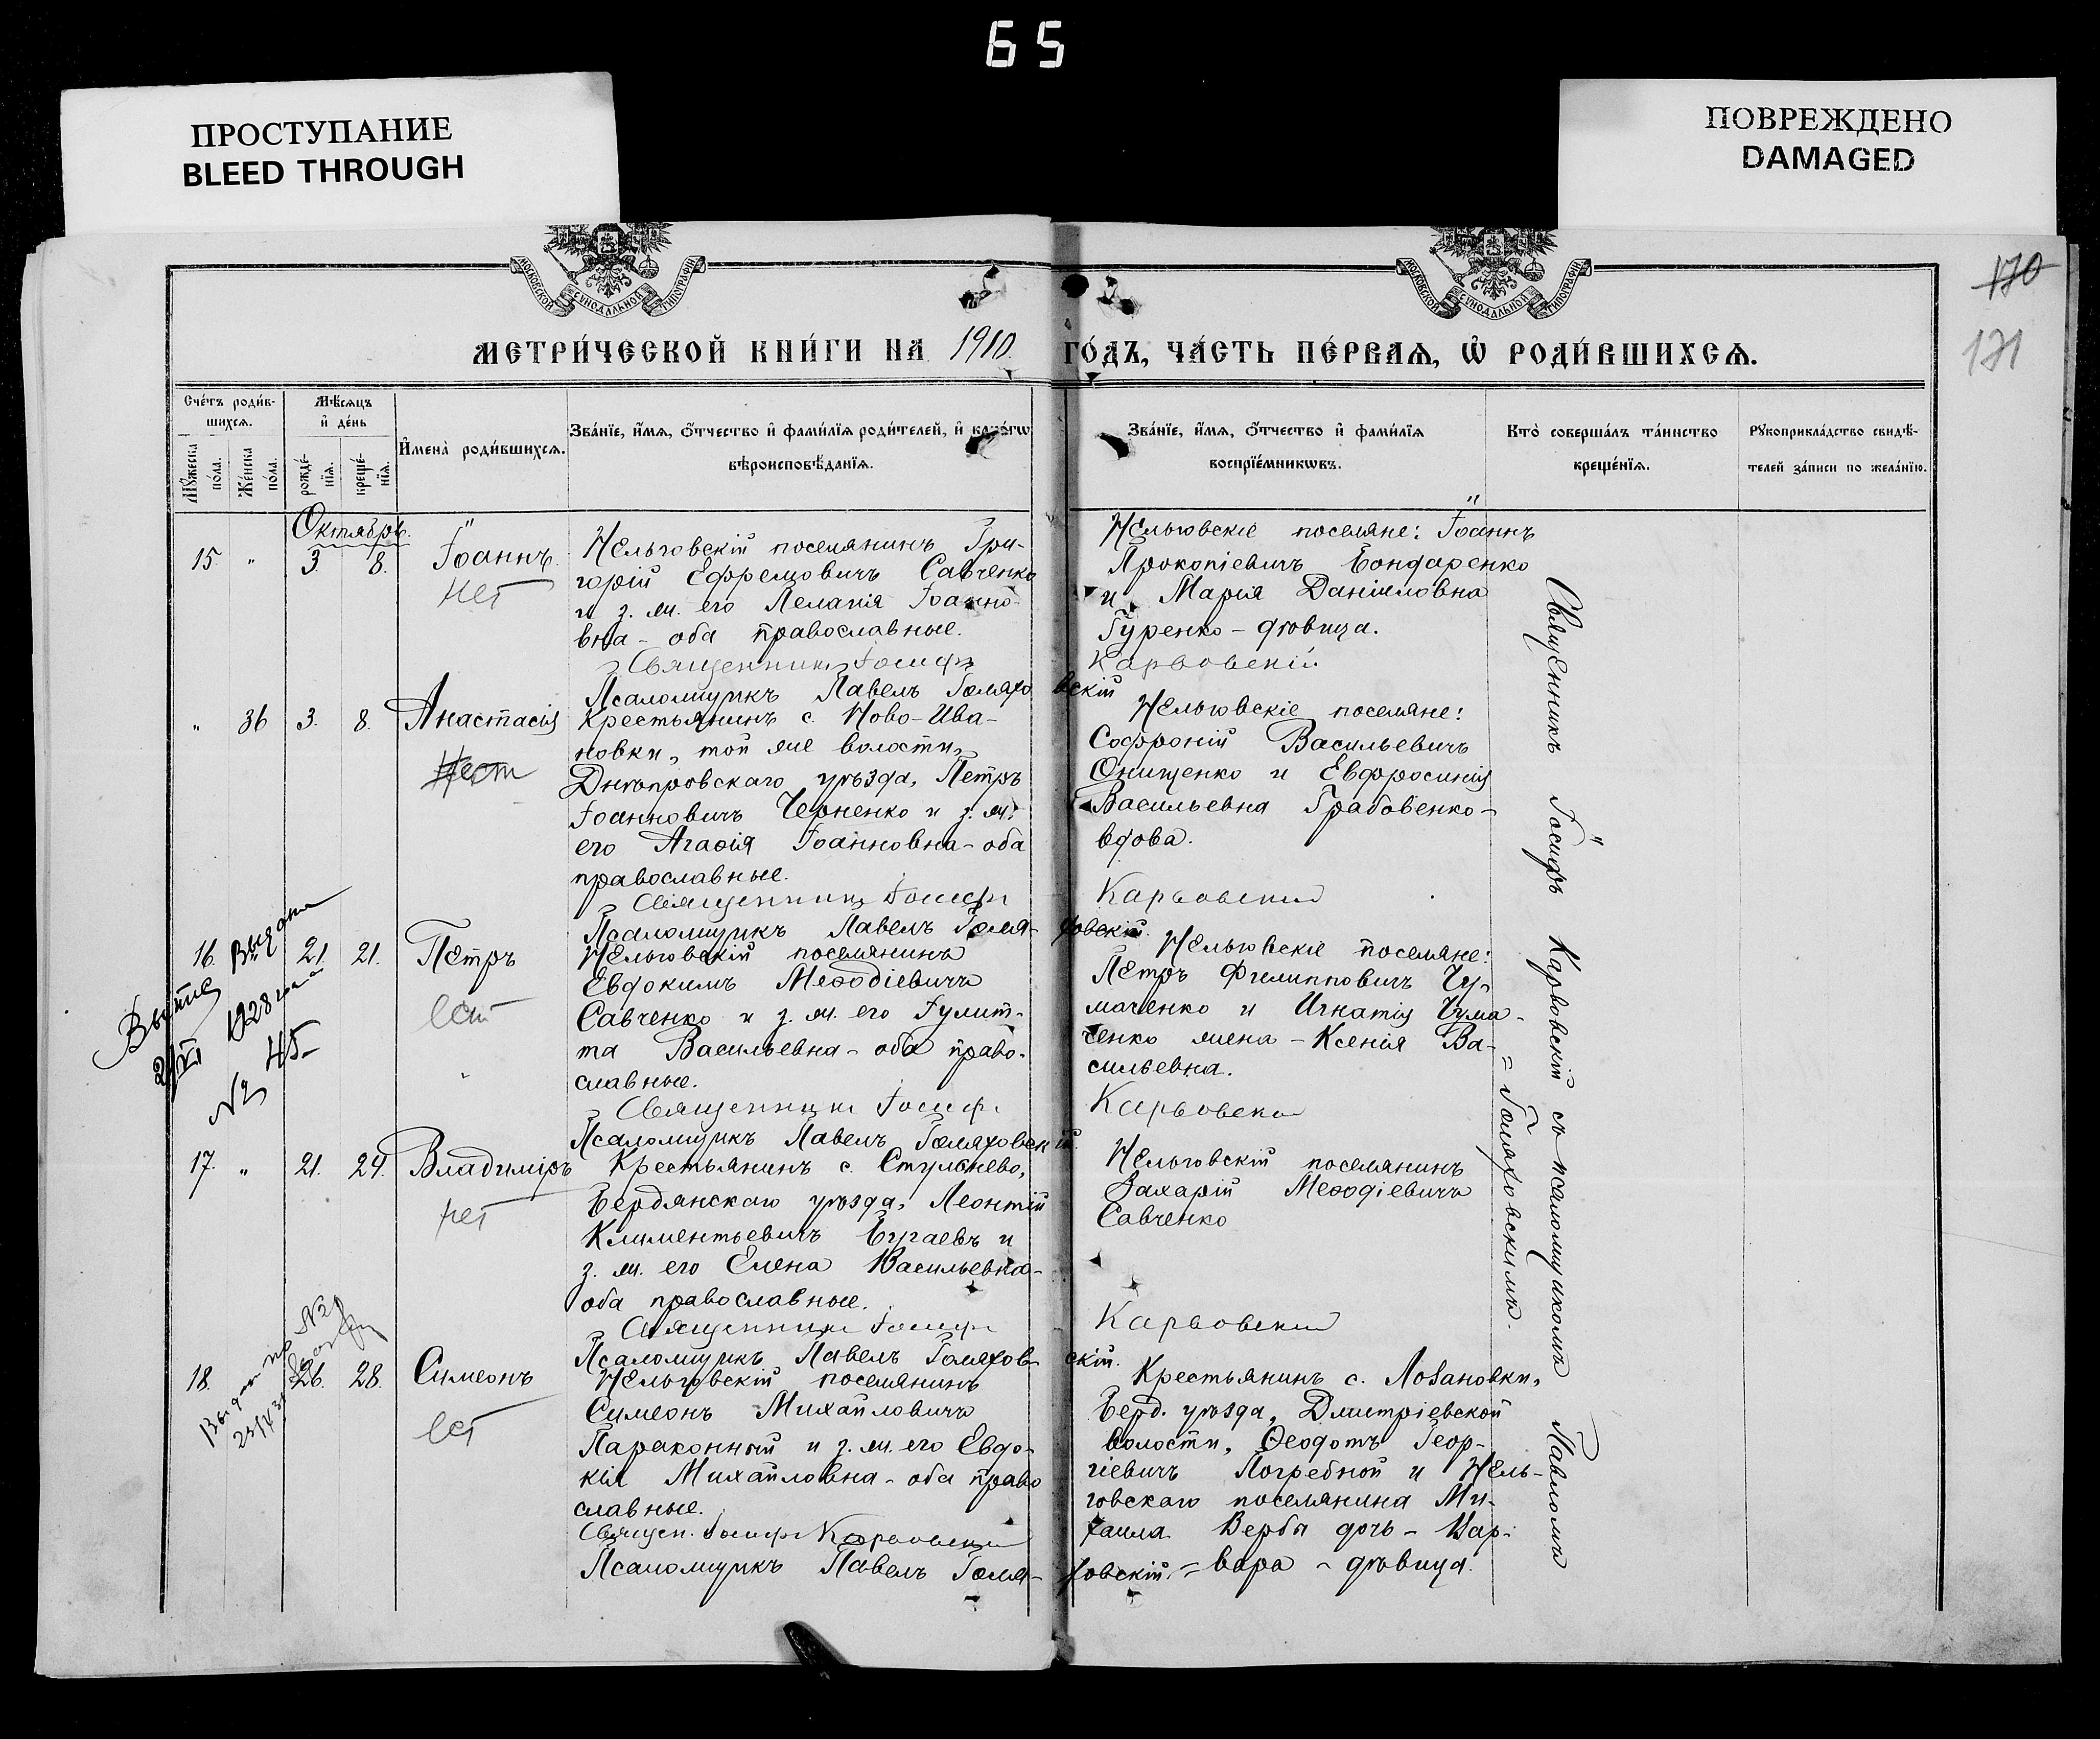 65
ПРОСТУПАНИЕ
BLEED THROUGH
ПОВРЕЖДЕНО
DAMAGED
МОСКОВСКОЙ СѴНОДАЛЬНОЙ ТИПОГРАФІИ
МОСКОВСКОЙ СѴНОДАЛЬНОЙ ТИПОГРАФІИ
170
171
МЕТРИ́ЧЕСКОЙ КНИ́ГИ НА 1910 ГО́ДЪ, ЧА́СТЬ ПЕ́РВАЯ, Ѽ РОДИ́ВШИХСЯ.
Сче́тъ роди́в-
шихся.
Мѣ́сяцъ
и҆ де́нь
Мꙋ́жеска
по́ла.
Же́нска
по́ла.
рожде́-
нїя.
креще́-
нїя.
И҆мена̀ роди́вшихся.
Зва́нїе, и҆́мя, ѻ҆́тчество и҆ фами́лїя роди́телей, и҆ како́гѡ
вѣроисповѣ́данїя.
Зва́нїе, и҆́мя, ѻ҆́тчество и҆ фами́лїя
воспрїе́мникѡвъ.
Кто̀ соверша́лъ та́инство
креще́нїя.
Рꙋкоприкла́дство свидѣ́-
телей за́писи по жела́нїю.
Октябрь.
15. " 3. 8. Іоаннъ.
нет
Нельговскій поселянинъ Гри-
горій Ефремовичъ Савченко
и з. ж. его Пелагія Іоанно-
вна - оба православные.
Священникъ Іосифъ Карвовскій
Псаломщикъ Павелъ Голяховскій
Нельговскіе поселяне: Іоаннъ
Прокопіевичъ Бондаренко
и Марія Даніиловна
Гуренко - дѣвица.
" 36 3. 8. Анастасія
Крестьянинъ с. Ново-Ива-
новки, той же волости,
Днѣпровскаго уѣзда, Петръ
Іоанновичъ Черненко и з. ж.
его Агаѳія Іоанновна - оба
православные.
Священникъ Іосифъ Карвовскій
Псаломщикъ Павелъ Голя-ховскій.
Нельговскіе поселяне:
Софроній Васильевичъ
Онищенко и Евфросинія
Васильевна Грабовенко -
вдова.
16. " 21. 21. Петръ
есть
Выдана
1928 года
№ 45
Нельговскій поселянинъ
Евдокимъ Меѳодіевичъ
Савченко и з. ж. его Іулит-
та Васильевна - оба право-
славные.
Священникъ Іосифъ Карвовскій
Псаломщикъ Павелъ Голяховскій.
Нельговскіе поселяне:
Петръ Филипповичъ Чу-
маченко и Игнатія Чума-
ченко жена - Ксенія Ва-
сильевна.
17. " 21. 24. Владиміръ
нет
Крестьянинъ с. Стульнево,
Бердянскаго уѣзда, Леонтій
Климентьевичъ Бугаевъ и
з. ж. его Елена Васильевна -
оба православные.
Священникъ Іосифъ Карвовскій
Псаломщикъ Павелъ Голяхов-скій.
Нельговскій поселянинъ
Захарій Меѳодіевичъ
Савченко
18. 26. 28. Симеонъ
ест
Нельговскій поселянинъ
Симеонъ Михайловичъ
Параконный и з. ж. его Евдо-
кія Михайловна - оба право
славные.
Священ. Іосифъ Карвовскій
Псаломщикъ Павелъ Голя-ховскій.
Крестьянинъ с. Лозановки,
Берд. уѣзда, Дмитріевской
волости, Ѳеодотъ Геор-
гіевичъ Погребной и Нель-
говскаго поселянина Ми-
хаила Вербы дочь - Вар-
=вара - дѣвица.
Священникъ Іосифъ Карвовскій съ псаломщикомъ Павломъ
= Голяховскимъ.